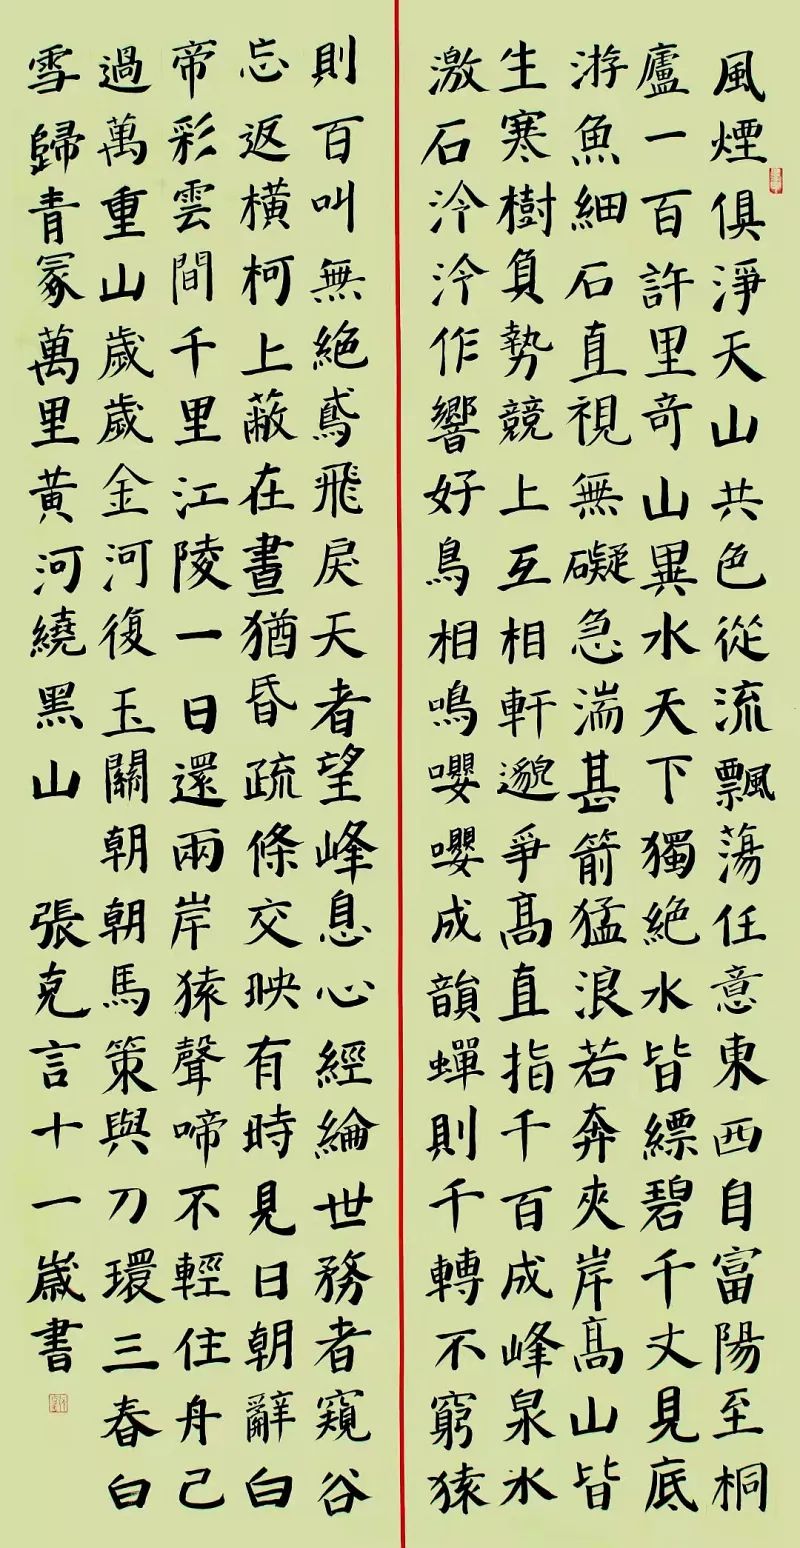 風煙俱淨天山共色從流飄蕩任意東西自富陽至桐
廬一百許里奇山異水天下獨絕水皆縹碧千丈見底
游魚細石直視無礙急湍甚箭猛浪若奔夾岸髙山皆
生寒樹負勢競上互相軒邈爭髙直指千百成峰泉水
激石泠泠作響好鳥相鳴嚶嚶成韻蟬則千轉不窮猿
則百叫無絕鳶飛戾天者望峰息心經綸世務者窺谷
忘返橫柯上蔽在晝猶昏疏條交映有時見日朝辭白
帝彩雲間千里江陵一日還兩岸猿聲啼不輕住舟己
過萬重山歲歲金河復玉關朝朝馬策與刀環三春白
雪歸青冢萬里黃河繞黑山 張克言十一歲書